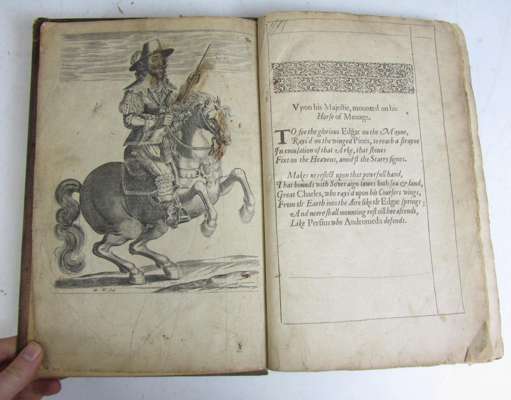 Vpon his Majestie, mounted on his
Horse of Menage.
TO see the glorious Edgar on the
Rays'd on the winged Pines, to reach a
In emulation of that Arke, that shines
Fixt on the Heavens, amidst the Starry signes.
Makes us reflect upon that powerfull hand,
That bounds with Soveraign lawes both sea & land,
Great Charles, who rays'd upon his Coursers wings,
From th' Earth into the Aire like th' Edgar springs;
And neere shall mounting rest till hee ascends,
Like Perseus who Andromeda defends.